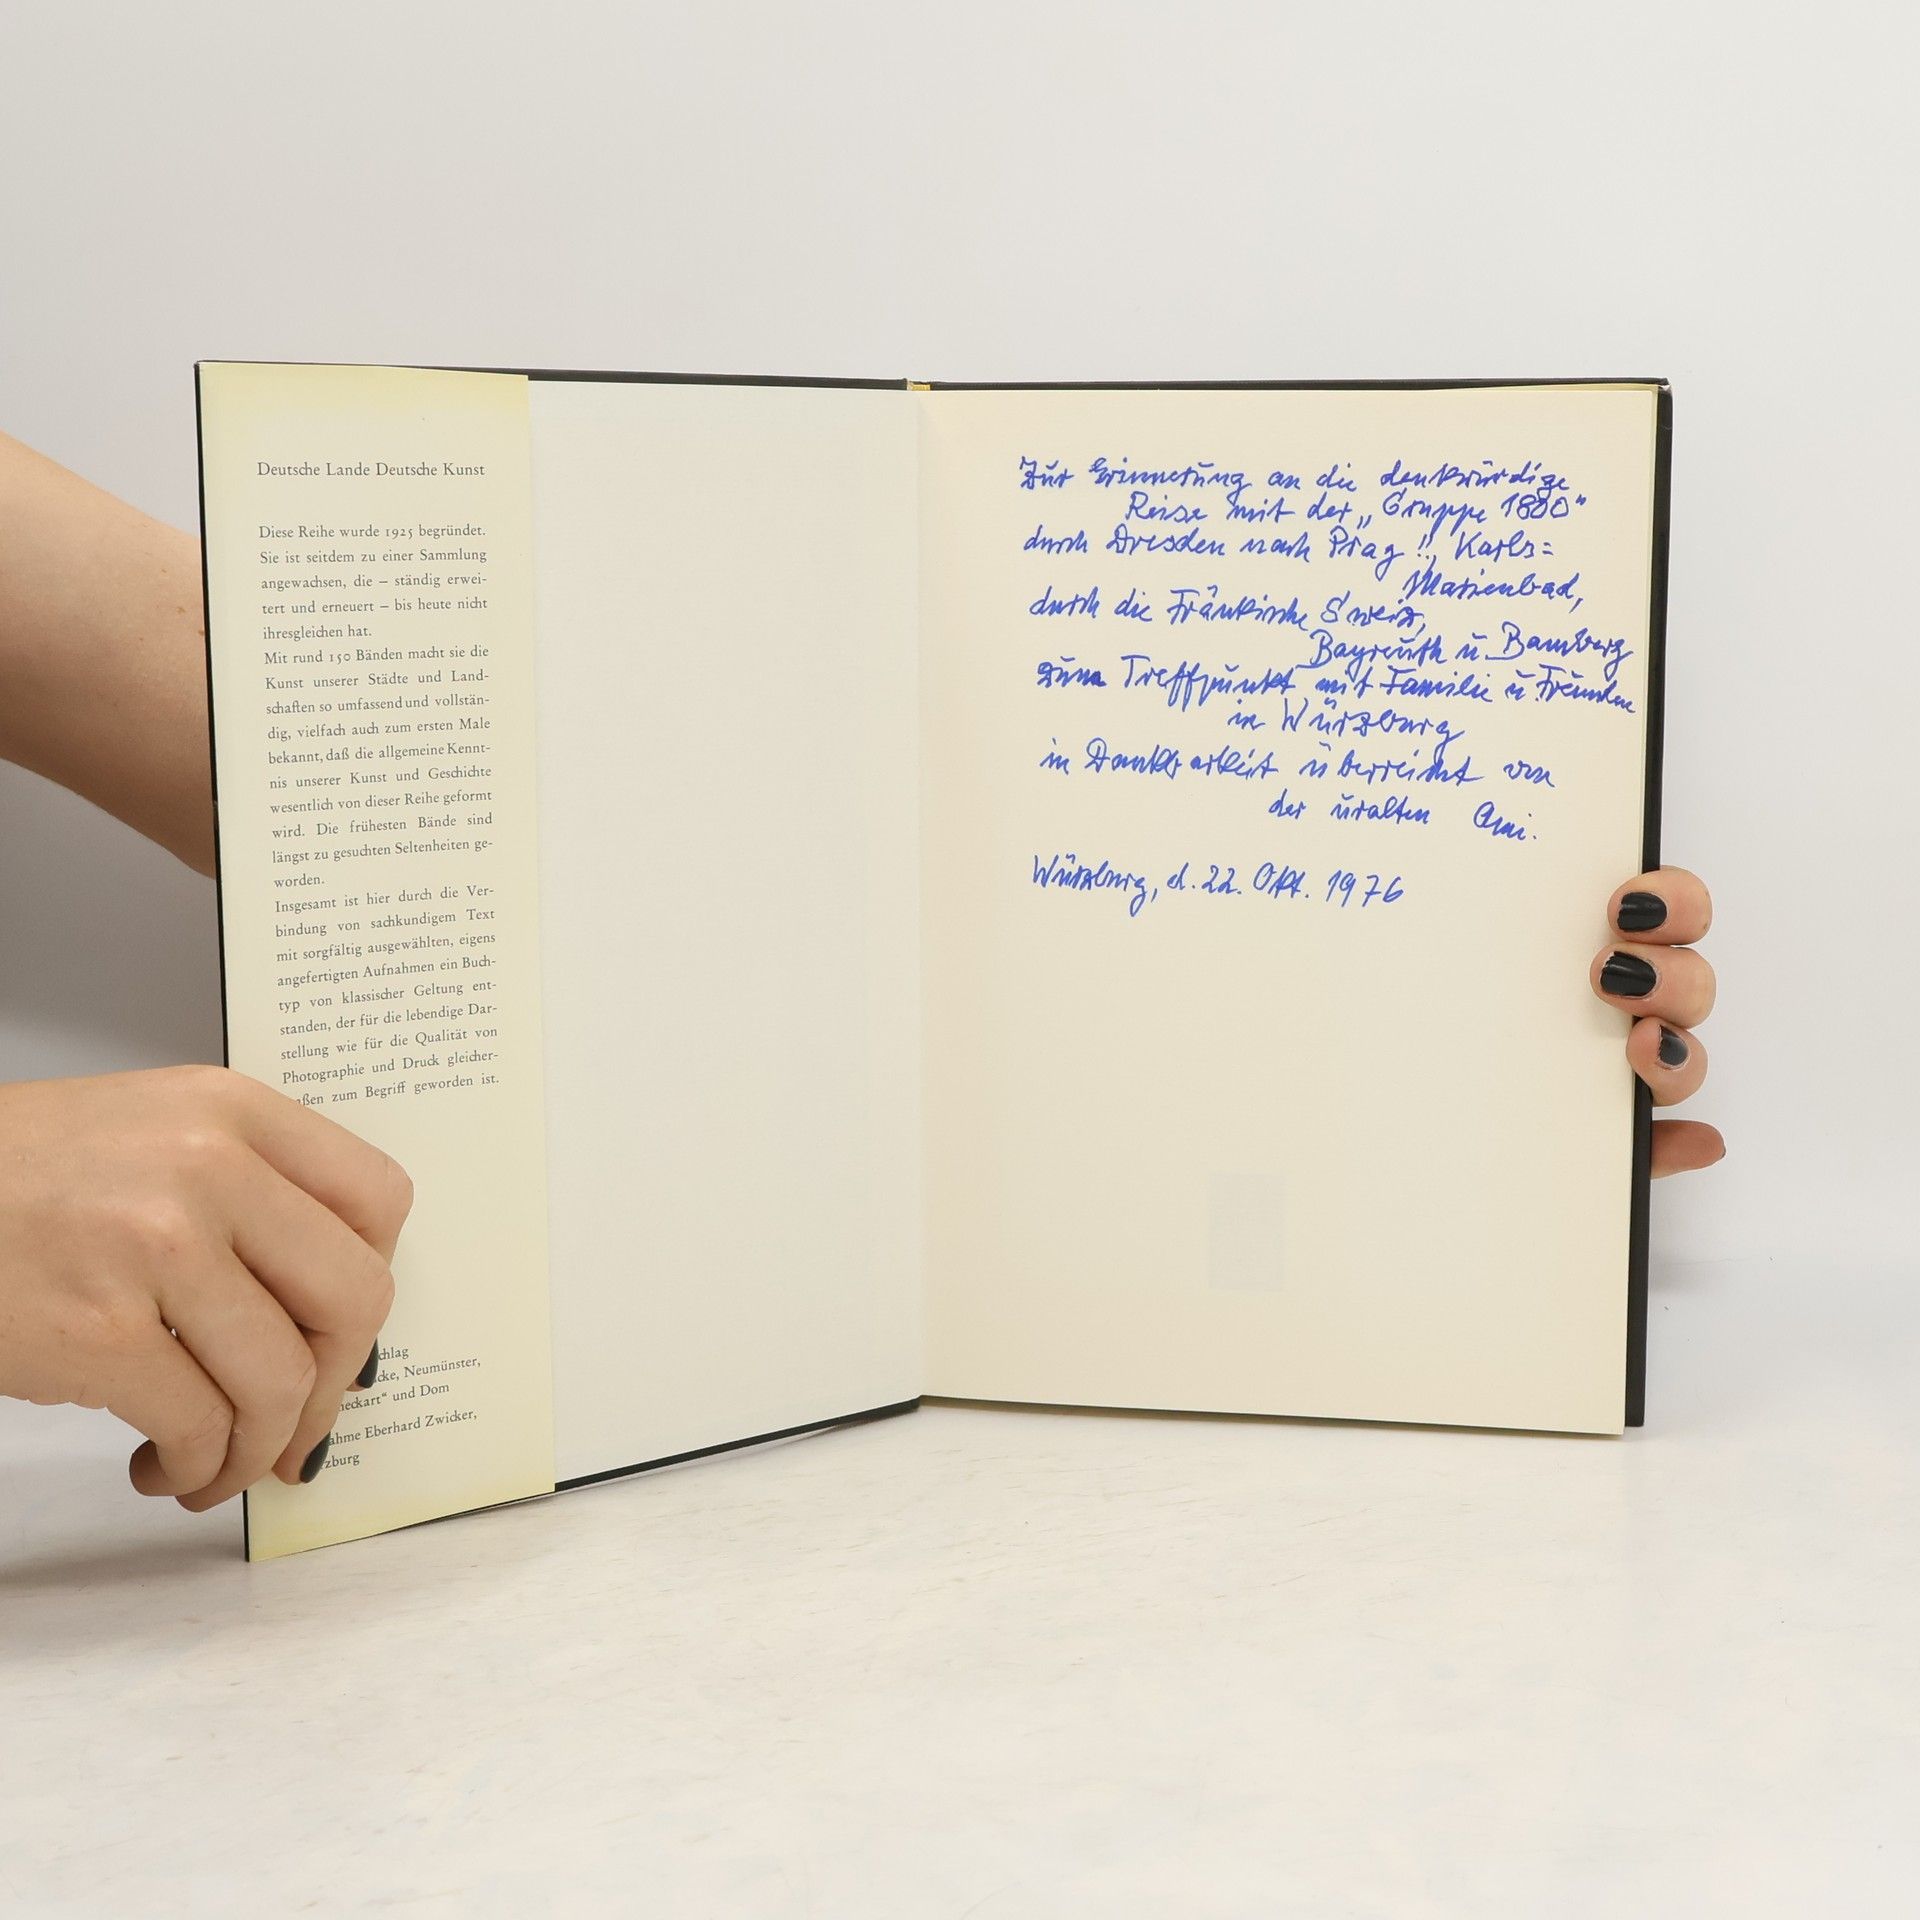 Deutsche Lande Deutsche Kunst
Diese Reihe wurde 1925 begründet.
Sie ist seitdem zu einer Sammlung
angewachsen, die – ständig erwei-
tert und erneuert – bis heute nicht
ihresgleichen hat.
Mit rund 150 Bänden macht sie die
Kunst unserer Städte und Land-
schaften so umfassend und vollstän-
dig, vielfach auch zum ersten Male
bekannt, daß die allgemeine Kennt-
nis unserer Kunst und Geschichte
wesentlich von dieser Reihe geformt
wird. Die frühesten Bände sind
längst zu gesuchten Seltenheiten ge-
worden.
Insgesamt ist hier durch die Ver-
bindung von sachkundigem Text
mit sorgfältig ausgewählten, eigens
angefertigten Aufnahmen ein Buch-
typ von klassischer Geltung ent-
standen, der für die lebendige Dar-
stellung wie für die Qualität von
Photographie und Druck gleicher-
aßen zum Begriff geworden ist.
chlag
cke, Neumünster,
neckart“ und Dom
ahme Eberhard Zwicker,
rzburg
Zur Erinnerung an die denkwürdige
Reise mit der „Gruppe 1800“
durch Dresden nach Prag!!, Karls=
Marienbad,
durch die Fränkische Sweiz,
Bayreuth u. Bamberg
zum Treffpunkt mit Familie u. Freunden
in Würzburg
in Dankbarkeit überreicht von
der uralten Omi.
Würzburg, d. 22. Okt. 1976